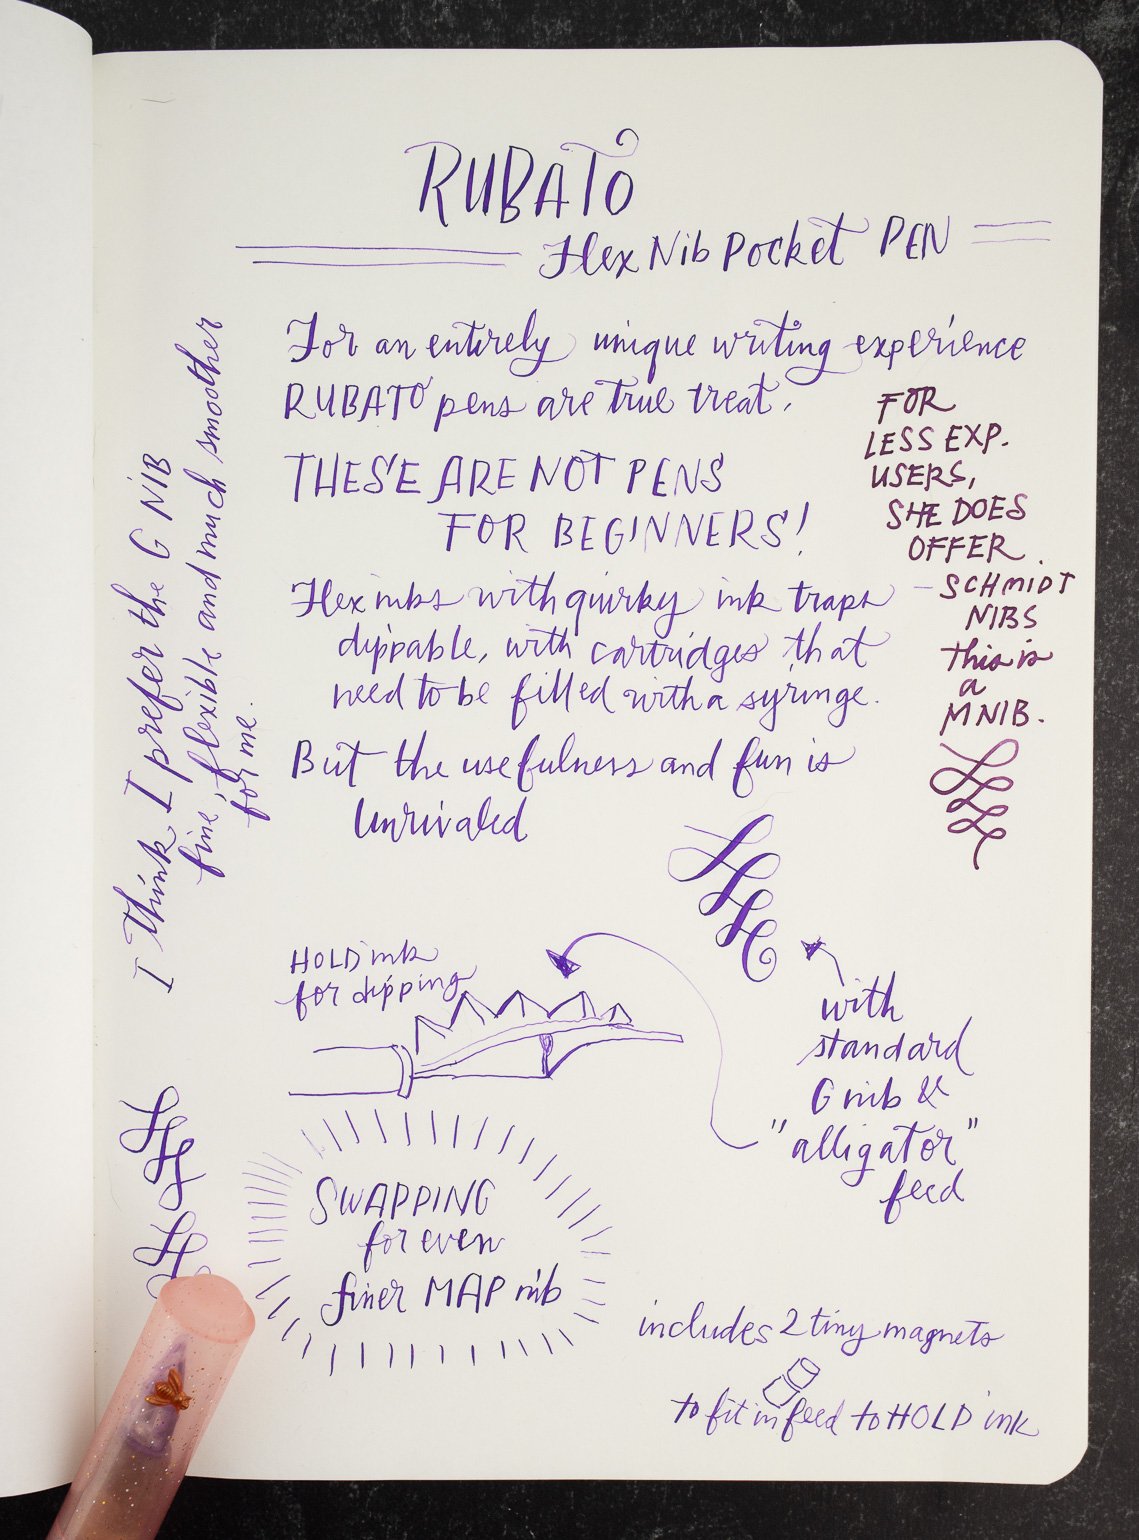 RUBATO
Flex Nib Pocket PEN
For an entirely unique writing experience
RUBATO pens are true treat.
THESE ARE NOT PENS
FOR BEGINNERS!
Flex nibs with quirky ink traps
dippable, with cartridges that
need to be filled with a syringe.
But the usefulness and fun is
unrivaled
FOR
LESS EXP.
USERS,
SHE DOES
OFFER
- SCHMIDT
NIBS
this is
a
M NIB.
I think I prefer the G NIB
fine, flexible and much smoother
for me.
HOLD ink
for dipping
with
standard
G nib &
"alligator"
feed
SWAPPING
for even
finer MAP nib
includes 2 tiny magnets
to fit in feed to HOLD ink